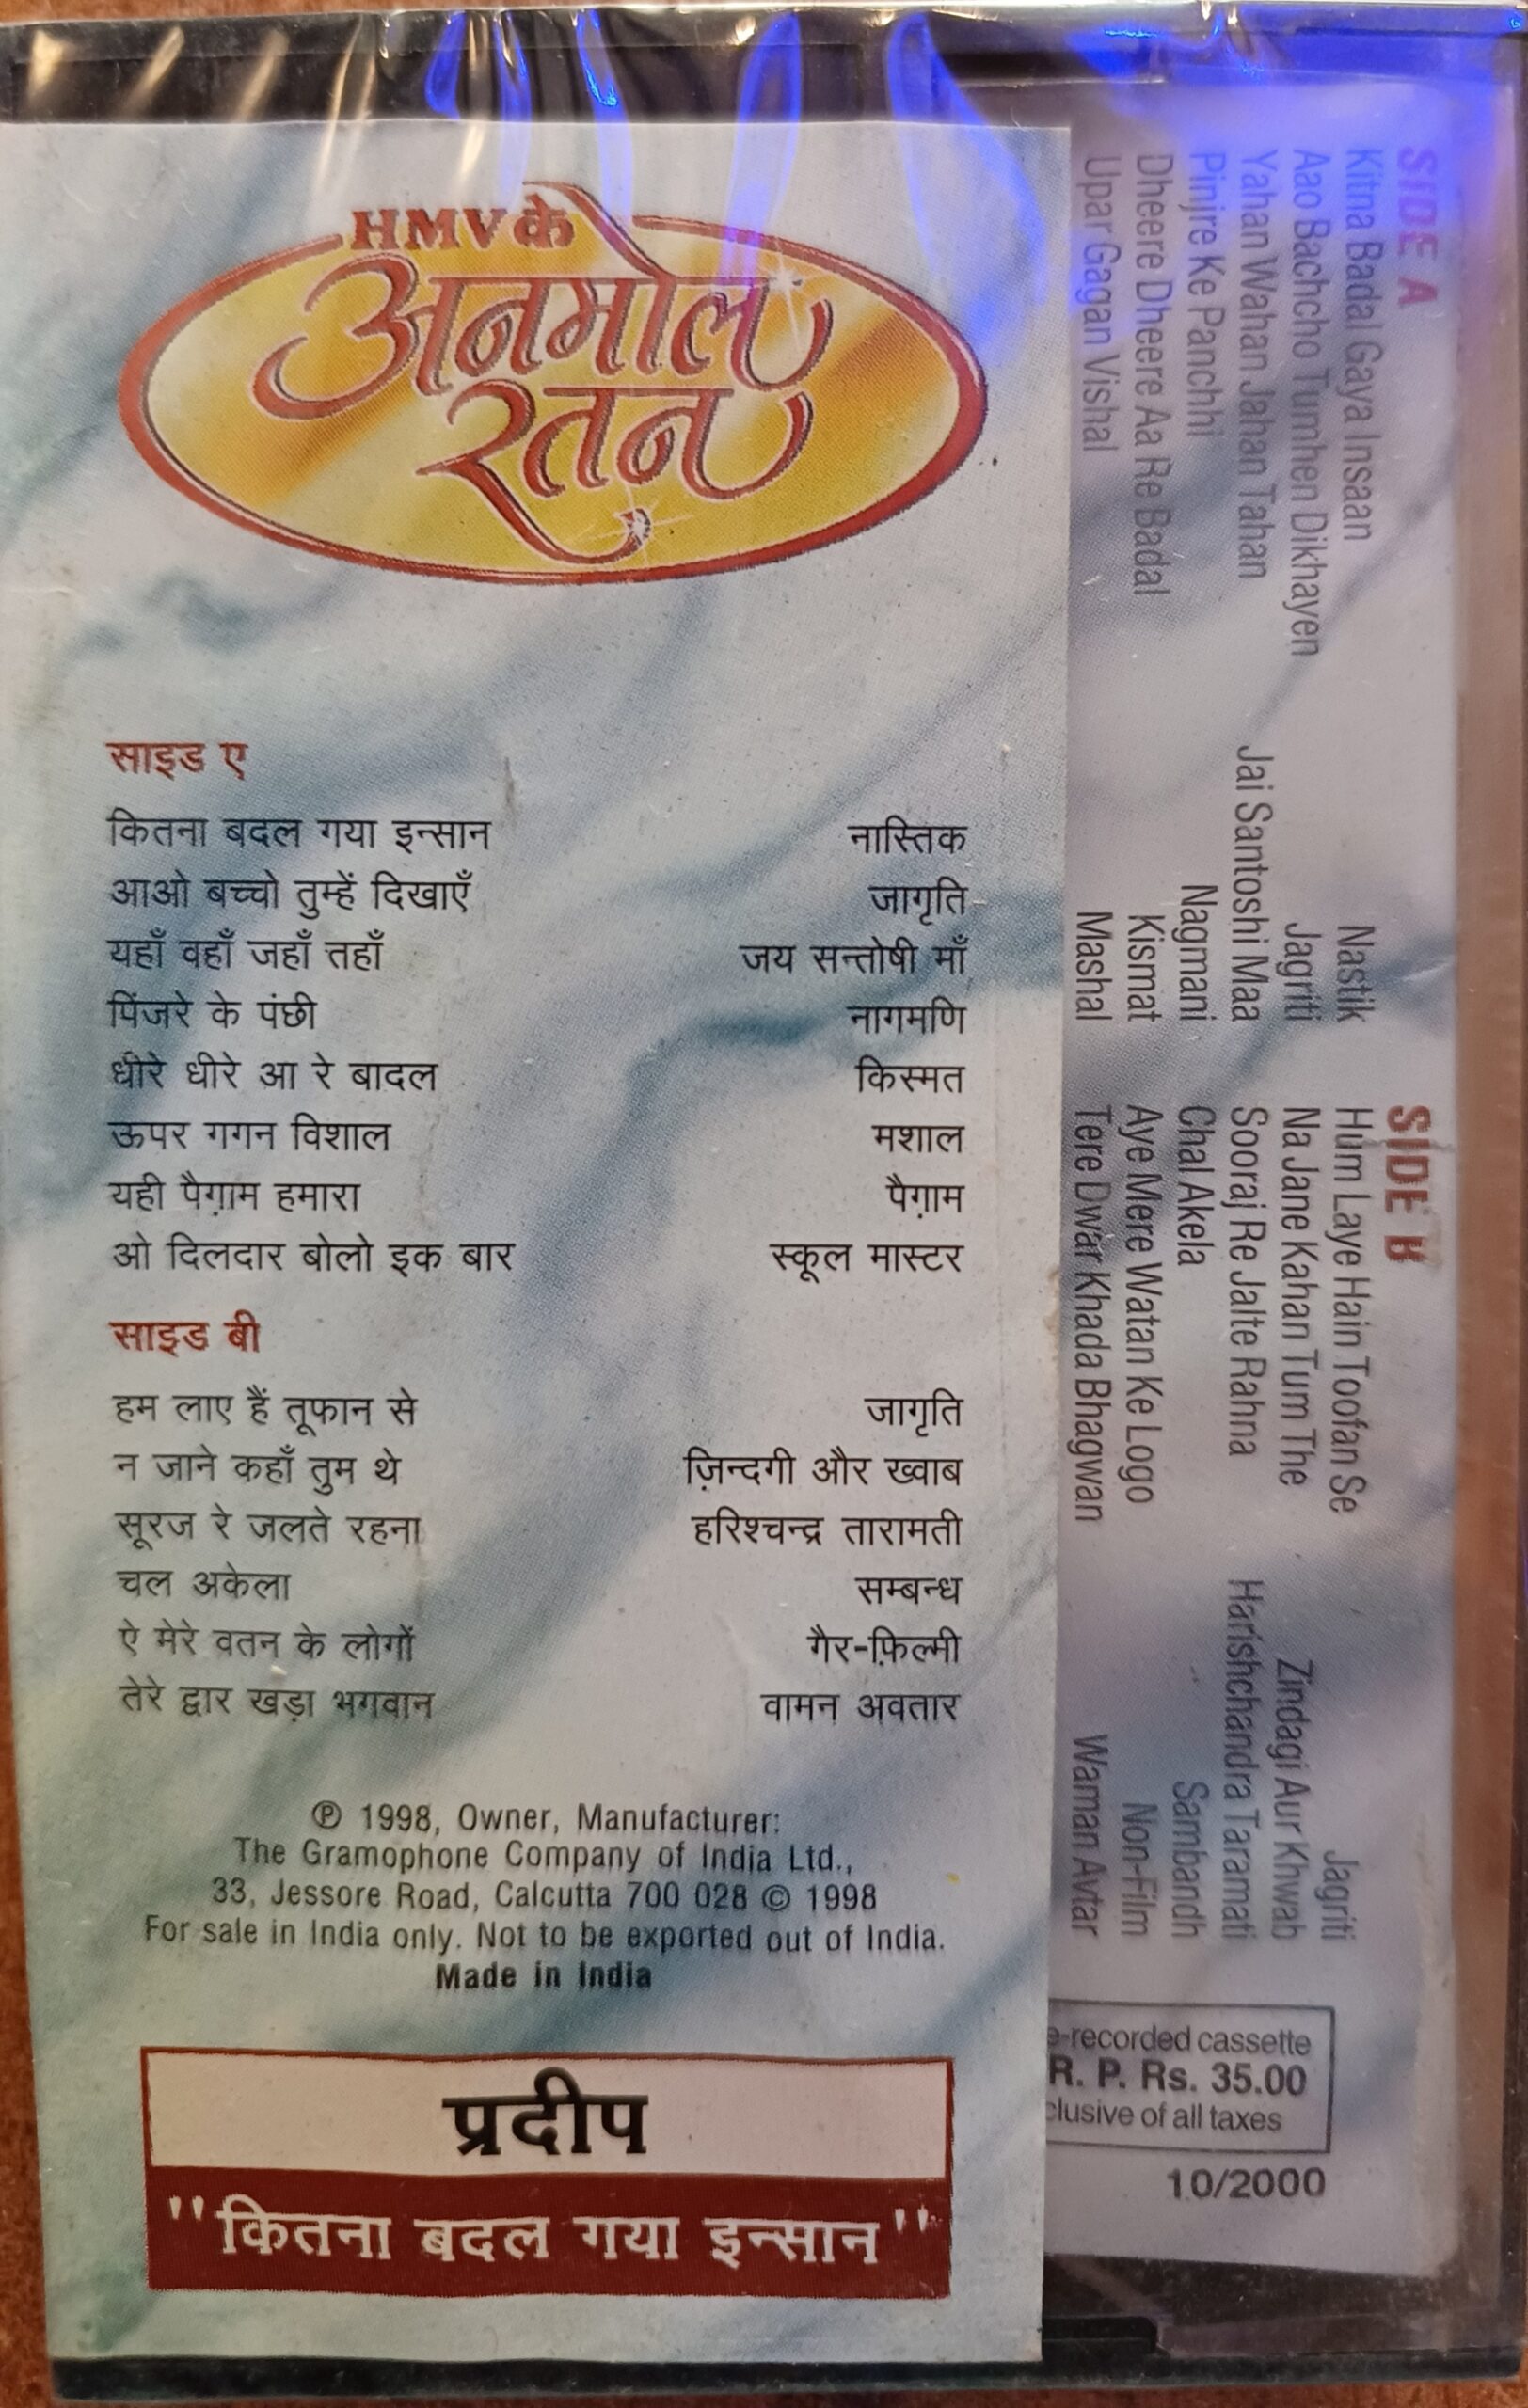 HMV के
अनमोल
रतन
साइड ए
कितना बदल गया इन्सान नास्तिक
आओ बच्चो तुम्हें दिखाएँ जागृति
यहाँ वहाँ जहाँ तहाँ जय सन्तोषी माँ
पिंजरे के पंछी नागमणि
धीरे धीरे आ रे बादल किस्मत
ऊपर गगन विशाल मशाल
यही पैग़ाम हमारा पैग़ाम
ओ दिलदार बोलो इक बार स्कूल मास्टर
साइड बी
हम लाए हैं तूफान से जागृति
न जाने कहाँ तुम थे ज़िन्दगी और ख्वाब
सूरज रे जलते रहना हरिश्चन्द्र तारामती
चल अकेला सम्बन्ध
ऐ मेरे वतन के लोगों गैर-फ़िल्मी
तेरे द्वार खड़ा भगवान वामन अवतार
℗ 1998, Owner, Manufacturer:
The Gramophone Company of India Ltd.,
33, Jessore Road, Calcutta 700 028 © 1998
For sale in India only. Not to be exported out of India.
Made in India
प्रदीप
"कितना बदल गया इन्सान"
SIDE A
Kitna Badal Gaya Insaan Nastik
Aao Bachcho Tumhen Dikhayen Jagriti
Yahan Wahan Jahan Tahan Jai Santoshi Maa
Pinjre Ke Panchhi Nagmani
Dheere Dheere Aa Re Badal Kismat
Upar Gagan Vishal Mashal
SIDE B
Hum Laye Hain Toofan Se Jagriti
Na Jane Kahan Tum The Zindagi Aur Khwab
Sooraj Re Jalte Rahna Harishchandra Taramati
Chal Akela Sambandh
Aye Mere Watan Ke Logo Non-Film
Tere Dwar Khada Bhagwan Waman Avtar
e-recorded cassette
R. P. Rs. 35.00
clusive of all taxes
10/2000